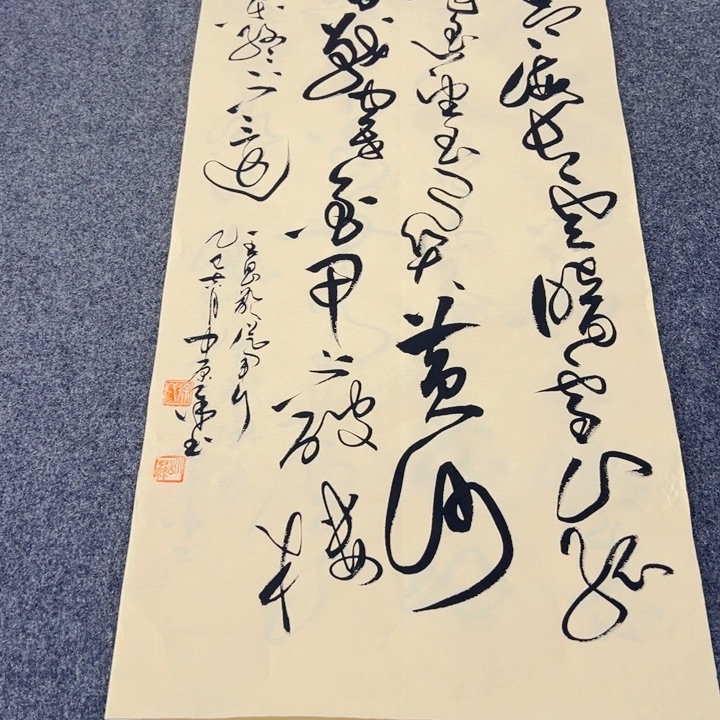 青海长云暗雪山孤
城遥望玉门关黄沙
百战穿金甲不破楼
兰终不还
王昌龄从军行
乙巳六月中原